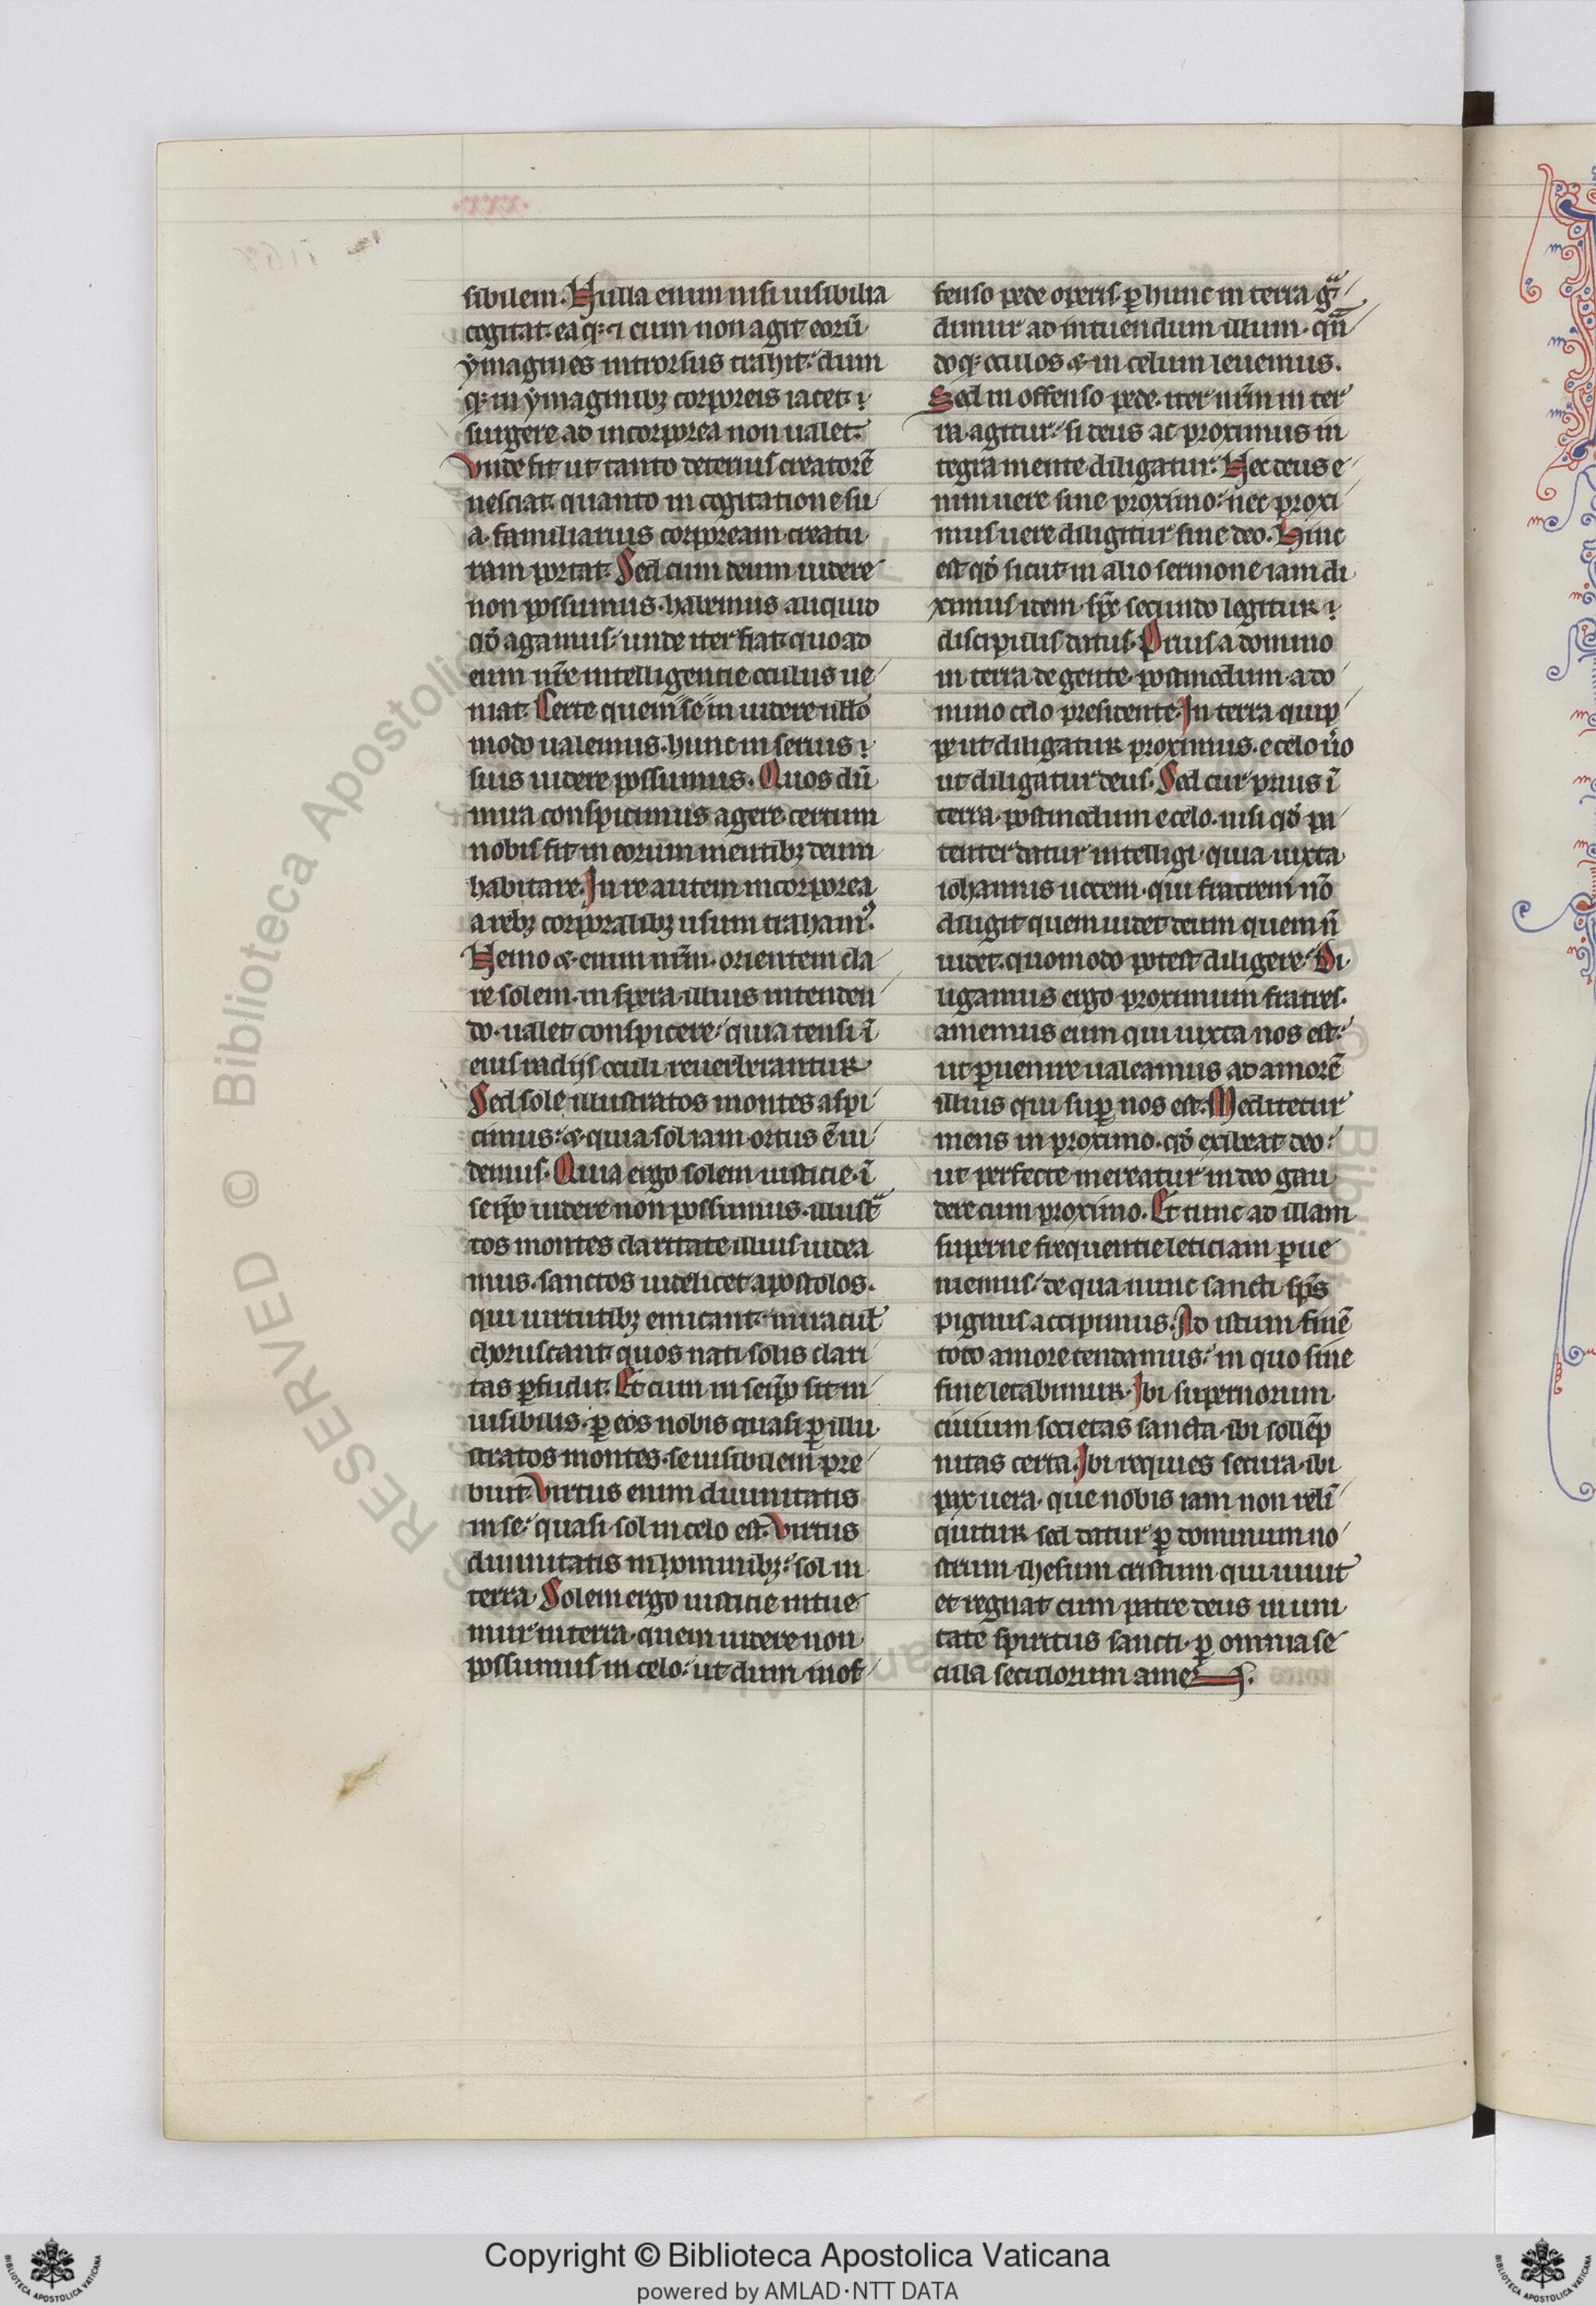 sibilem. Nulla enim nisi uisibilia
cogitat. ea q; ⁊ cum non agit eorū
ymagines introrsus trahit. dum
q; in ymaginibꝫ corporeis iacet
surgere ad incorporea non ualet.
Vnde fit ut tanto deterius creatorē
nesciat. quanto in cogitatione su
a. familiarius corpoream creatu
ram portat. Sed cum deum uidere
non possumus. habemus aliquid
qd̓ agamus. unde iter fiat quo ad
eum nr̄e intelligentie oculus ue
niat. Certe quem se in uidere ullo
modo ualemus. hunc in seruis
suis uidere possumus. Quos dū
mira conspicimus agere. certum
nobis fit in eorum mentibꝫ deum
habitare. In re autem incorporea
a rebꝫ corporalibꝫ usum traham⁹.
Nemo & enim nr̄m. orientem cla
re solem. in spera illius intenden
do. ualet conspicere. quia tensi ī
eius radijs oculi reuerberantur
Sed sole illustratos montes aspi
cimus. & quia sol iam ortus ē ui
demus. Quia ergo solem iusticie. ī
seip̄o uidere non possumus. illustͣ
tos montes claritate illius uidea
mus. sanctos uidelicet apostolos.
qui uirtutibꝫ emicant. miracul̓
choruscant quos nati solis clari
tas ꝑfudit. Et cum in seip̄o sit in
uisibilis. ꝑ eos nobis quasi ꝑ illu
stratos montes. se uisibilem pre
buit. Virtus enim diuinitatis
in se. quasi sol in celo est. Virtus
diuinitatis in hominibꝫ. sol in
terra. Solem ergo iusticie intue
mur in terra. quem uidere non
possumus in celo. ut dum inof
fenso pede operis. ꝑ hunc in terra gͣ
dimur ad intuendum illum. qn̄
doq; oculos & in celum leuemus.
Sed inoffenso pede. iter nr̄m in ter
ra. agitur. si deus ac proximus in
tegra mente diligatur. Nec deus e
nim uere sine proximo. nec proxi
mus uere diligitur sine deo. Hinc
est qd̓ sicut in alio sermone iam di
ximus idem. sp̄c secundo legitur
discipulis datus. Prius a domino
in terra degente. postmodum. a do
mino celo presidente. In terra quip
pe ut diligatur proximus. e celo u̓o
ut diligatur deus. Sed cur prius ī
terra. postmodum e celo. nisi qd̓ pa
tenter datur intelligi. quia iuxta
iohannis uocem. qui fratrem nō
diligit quem uidet deum quem n̄
uidet. quomodo potest diligere. Di
ligamus ergo proximum fratres.
amemus eum qui iuxta nos est.
ut ꝑuenire ualeamus ad amorē
illius qui suꝑ nos est. Meditetur
mens in proximo. qd̓ exibeat deo.
ut perfecte mereatur in deo gau
dere cum proximo. Et tunc ad illam
superne frequentie leticiam ꝑue
niemus. de qua nunc sancti. sp̄s
pignus accipimus. Ad istum finē
toto amore tendamus. in quo sine
fine letabimur. Ibi supernorum
ciuium societas sancta. ibi sollēp
nitas certa. Ibi requies secura. ibi
pax uera. que nobis iam non reli
quitur sed datur ꝑ dominum no
strum ihesum cristum qui uiuit
et regnat cum patre deus in uni
tate spiritus sancti. ꝑ omnia se
cula seculorum ame
© Biblioteca Apostolica
RESERVED
Copyright © Biblioteca Apostolica Vaticana
powered by AMLAD·NTT DATA
BIBLIOTECA APOSTOLICA VATICANA
BIBLIOTECA APOSTOLICA VATICANA